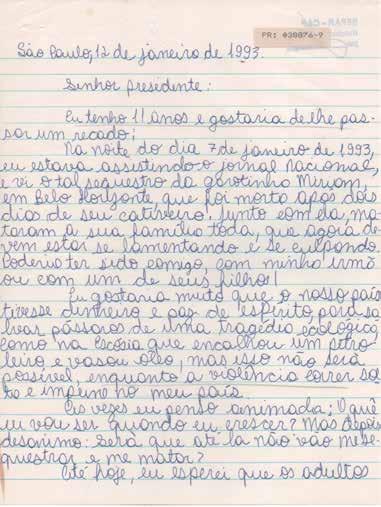 PR: 030876-9
São Paulo, 12 de janeiro de 1993.
Senhor presidente:
Eu tenho 11 anos e gostaria de lhe pas-
sar um recado:
Na noite do dia 7 de janeiro de 1993,
eu estava assistindo o jornal Nacional,
e vi o tal seqüestro da garotinha Miriam,
em Belo Horizonte que foi morta após dois
dias de seu cativeiro! junto com ela, ma-
taram a sua família toda, que agora de-
vem estar se lamentando e se culpando.
Poderia ter sido comigo, com minha irmã
ou com um de seus filhos!
Eu gostaria muito que o nosso país
tivesse dinheiro e paz de espírito para sa-
lvar pássaros de uma tragédia ecológica
como na Escósia que encalhou um petro-
leiro e vasou óleo, mas isso não será
possível, enquanto a violência correr sol-
te e impune no meu país.
Às vezes eu penso animada; O quê
eu vou ser quando eu crescer? Mas depois
desanimo: será que até la não vão me se-
questrar e me matar?
Até hoje, eu esperei que os adultos